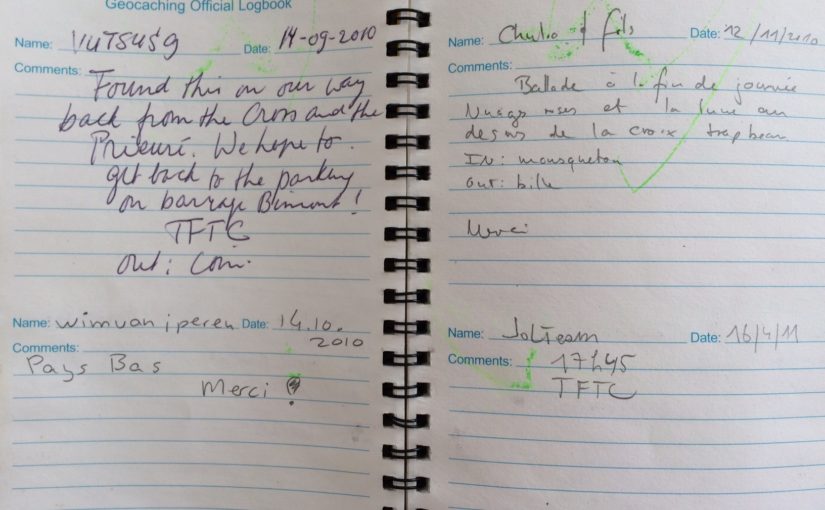 Geocaching Official Logbook
Name: VUTSUSG Date: 14-09-2010
Comments: Found this on our way
back from the Cross and the
Prieuré. We hope to
get back to the parking
on barrage Bimont!
TFTC
out: Coin.
Name: wimvaniperen Date: 14.10.
2010
Comments:
Pays Bas
Merci !
Name: et fils Date: 12/11/2010
Comments:
Ballade à la fin de journée
Nuages roses et la lune au
dessus de la croix trop beau
IN: mousqueton
out: bille
Merci
Name: JolTeam Date: 16/4/11
Comments: 17h45
TFTC